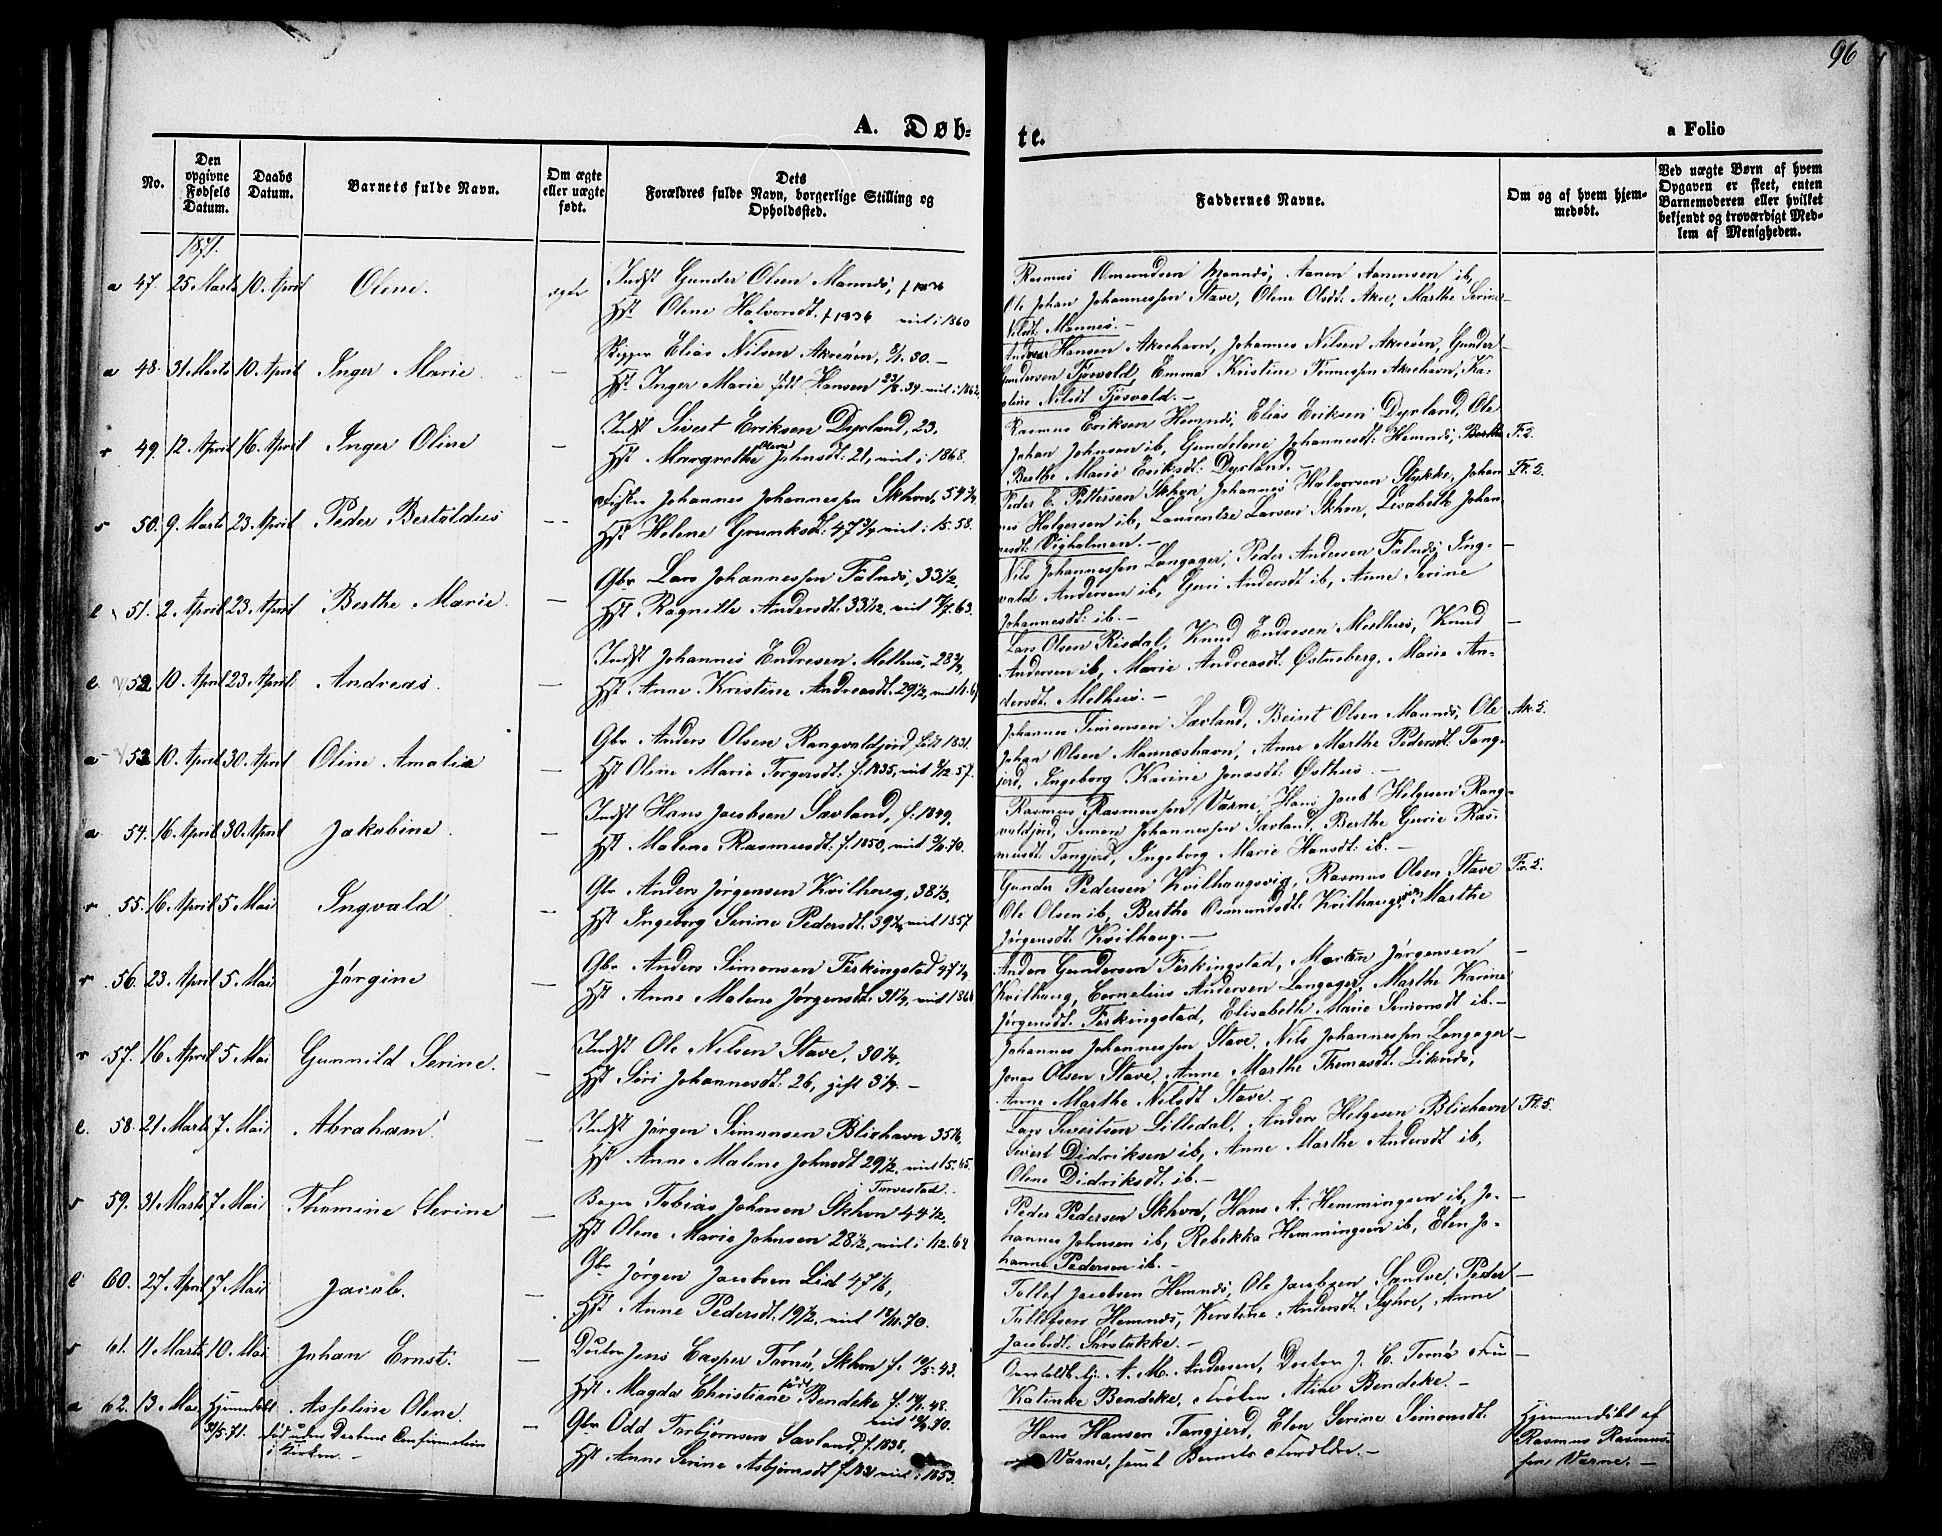 96
A. Døb-
te.
a Folio
No.
Den opgivne Fødsels Datum.
Daabs Datum.
Barnets fulde Navn.
Om ægte eller uægte født.
Dets Forældres fulde Navn, borgerlige Stilling og Opholdssted.
Faddernes Navne.
Om og af hvem hjemmedøbt.
Ved uægte Børn af hvem Opgaven er skeet, enten Barnemoderen eller hvilket bekjendt og troværdigt Medlem af Menigheden.
1871.
a 47. 25 Marts 10. April Olene. ægte
Indst Gunder Olsen Mannæs, f 1836
Hst. Olene Halvorsdt. f 1836 viet i 1860
Rasmus Omundsen Mannæs, Aanen Aanensen ib,
Ole Johan Johannessen Stave, Olene Olsdt. Akre, Marthe Serine
Nilsdt. Mannæs. —
a 48. 31 Marts 10. April Inger Marie. —
Skipper Elias Nilsen Akreøen, 30. —
Hst. Inger Marie født Hansen 34. viet i 1862
Andreas Hansen Akrehavn, Johannes Nilsen Akreøen, Gunder
Gundersen Tjøsvold, Emma Kristine Tønnessen Akrehavn, Ka-
roline Nilsdt Tjøsvold. —
r 49. 12 April 16 April Inger Oline —
Indst Sivert Eriksen Dyrland, 23.
Hst. Margrethe Olene Johnsdt: 21, viet i 1868.
Rasmus Eriksen Hemnæs, Elias Eriksen Dyrland, Ole
Johan Johnsen ib, Gundelene Johannesdt: Hemnæs, Berthe
Berthe Marie Eriksdt: Dyrland. —
s 50. 9. Marts 23. April Peder Bertoldus —
Fister Johannes Johannessen Skhvn, 54 3/4
Hst Helene 47 3/4 viet i 58.
Peder E. Pettersen Skhvn, Johannes Halvorsen Stykke, Johan-
nes Helgesen ib, Laurentze Larsen Skhvn, Lisabeth Johan-
nesdt: Vigholmen. —
l 51. 2. April 23. April Berthe Marie. —
Gbr. Lars Johannessen Falnæs, 33 1/2,
Hst Ragnille Andersdt: 33 1/2. viet 63.
Nils Johannessen Langager, Peder Andersen Falnæs, Ing-
vald Andersen ib, Guri Andersdt ib, Anne Serine
Johannesdt: ib. —
l. 52 10. April 23 April. Andreas. —
Indst Johannes Endresen Melhus, 28 3/4,
Hst Anne Kristine Andreasdt. 29 1/2, viet
Lars Olsen Risdal, Knud Endresen Melhus, Knud
Andersen ib, Marie Andreasdt. Østneberg, Marie An-
dersdt. Melhus. —
a 53 10. April 30 April Oline Amalia —
Gbr Anders Olsen Rangvaldjord født 1831.
Hst Oline Marie Torgersdt. f. 1835, viet 57.
Johannes Simensen Sævland, Beint Olsen Mannæs, Ole
Johan Olsen Mannæshavn, Anne Marthe Pedersdt. Tang-
jerd, Ingeborg Karine Jonasdt: Østhus. —
a 54. 16 April 30 April Jakobine. —
Indst Hans Jacobsen Sævland, f: 1849,
Hst. Malene Rasmusdt: f. 1850, viet 70.
Rasmus Rasmussen Varne, Hans Jacob Helgesen Rang-
valdjord, Simon Johannessen Sævland, Berthe Gurie Ras-
musdt: Tangjerd, Ingeborg Marie Hansdt: ib. —
r 55. 16 April 5 Mai Ingvald —
Gbr Anders Jørgensen Kvilhoug, 38 1/3.
Hst Ingeborg Serine Pedersdt. 39 1/4 viet 1857
Gunder Pedersen Kvilhaugsvig, Rasmus Olsen Stave
Ole Olsen ib, Berthe Osmundsdt: Kvilhaugsv, Marthe
Jørgensdt: Kvilhaug. —
r 56. 23 April 5 Mai Jørgine —
Gbr Anders Simonsen Ferkingstad 47 1/4
Hst Anne Malene Jørgensdt: 31 1/4, viet
Anders Gundersen Ferkingstad, Martin Jørgensen
Kvilhaug, Cornelius Andersen Langager, Marthe Karine
Jørgensdt. Ferkingstad, Elisabeth Marie Simonsdt ib. —
r 57. 16 April 5 Mai Gunnild Serine. —
Indst Ole Nilsen Stave, 30 1/4,
Hst Siri Johannesdt: 26, gift 3 1/2. —
Johannes Johannessen Stave, Nils Johannessen Langager
Jonas Olsen Stave, Anne Marthe Thomasdt. Liknæs,
Anne Marthe Nilsdt Stave. —
l. 58. 21 Marts 7 Mai Abraham —
Indst Jørgen Simonsen Blichavn 35 1/6,
Hst Anne Malene Johnsdt 29 1/2, viet 65.
i Torvestad.
Lars Sivertsen Lilledal, Anders Helgesen Blichavn
Sivert Didriksen ib, Anne Marthe Andersdt ib,
Olene Didriksdt. ib. —
s 59. 31 Marts 7 Mai Thomine Serine —
Bager Tobias Johnsen Skhvn 44 1/2,
Hst Olene Marie Johnsen 28 1/2, viet i 64
Peder Pedersen Skhvn, Hans A. Hemmingsen ib, Jo-
hannes Johnsen ib, Rebekka Hemmingsen ib, Elen Jo-
hanne Pedersen ib. —
l 60. 27 April 7 Mai Jacob. —
Gbr Jørgen Jacobsen Lid 47 1/6,
Hst Anne Pedersdt: 19 1/2. viet 18/10.70.
Tollef Jacobsen Hemnæs, Ole Jacobsen Sandve, Peder
Tollefsen Hemnæs, Kirstine Andersdt. Syhre, Anne
Jacobsdt: Sørstokke. —
s 61. 11 Marts 10. Mai Johan Ernst. —
Doctor Jens Casper Tornø, Skhvn f. 43.
Hst. Magda Christiane født Bendeke f. 48.
viet 70.
A. M. Andersen, Doctor J. C. Tornø, Fru
Katinke Bendeke, Frøken Aline Bendeke. —
a 62. 13 Mai Hjemmedøbt Asseline Olene. —
31/5.71. død uden Daabens Confirmation
i Kirken. —
Gbr Odd Torbjørnsen Sævland, f. 1838,
Hst Anne Serine Asbjørnsdt f. 1831 viet i 1853.
Hans Hansen Tangjerd, Elen Serine Simonsdt.
Varne, samt Barnets Forældre. —
Hjemmedøbt af
Rasmus Rasmus-
sen Varne. —